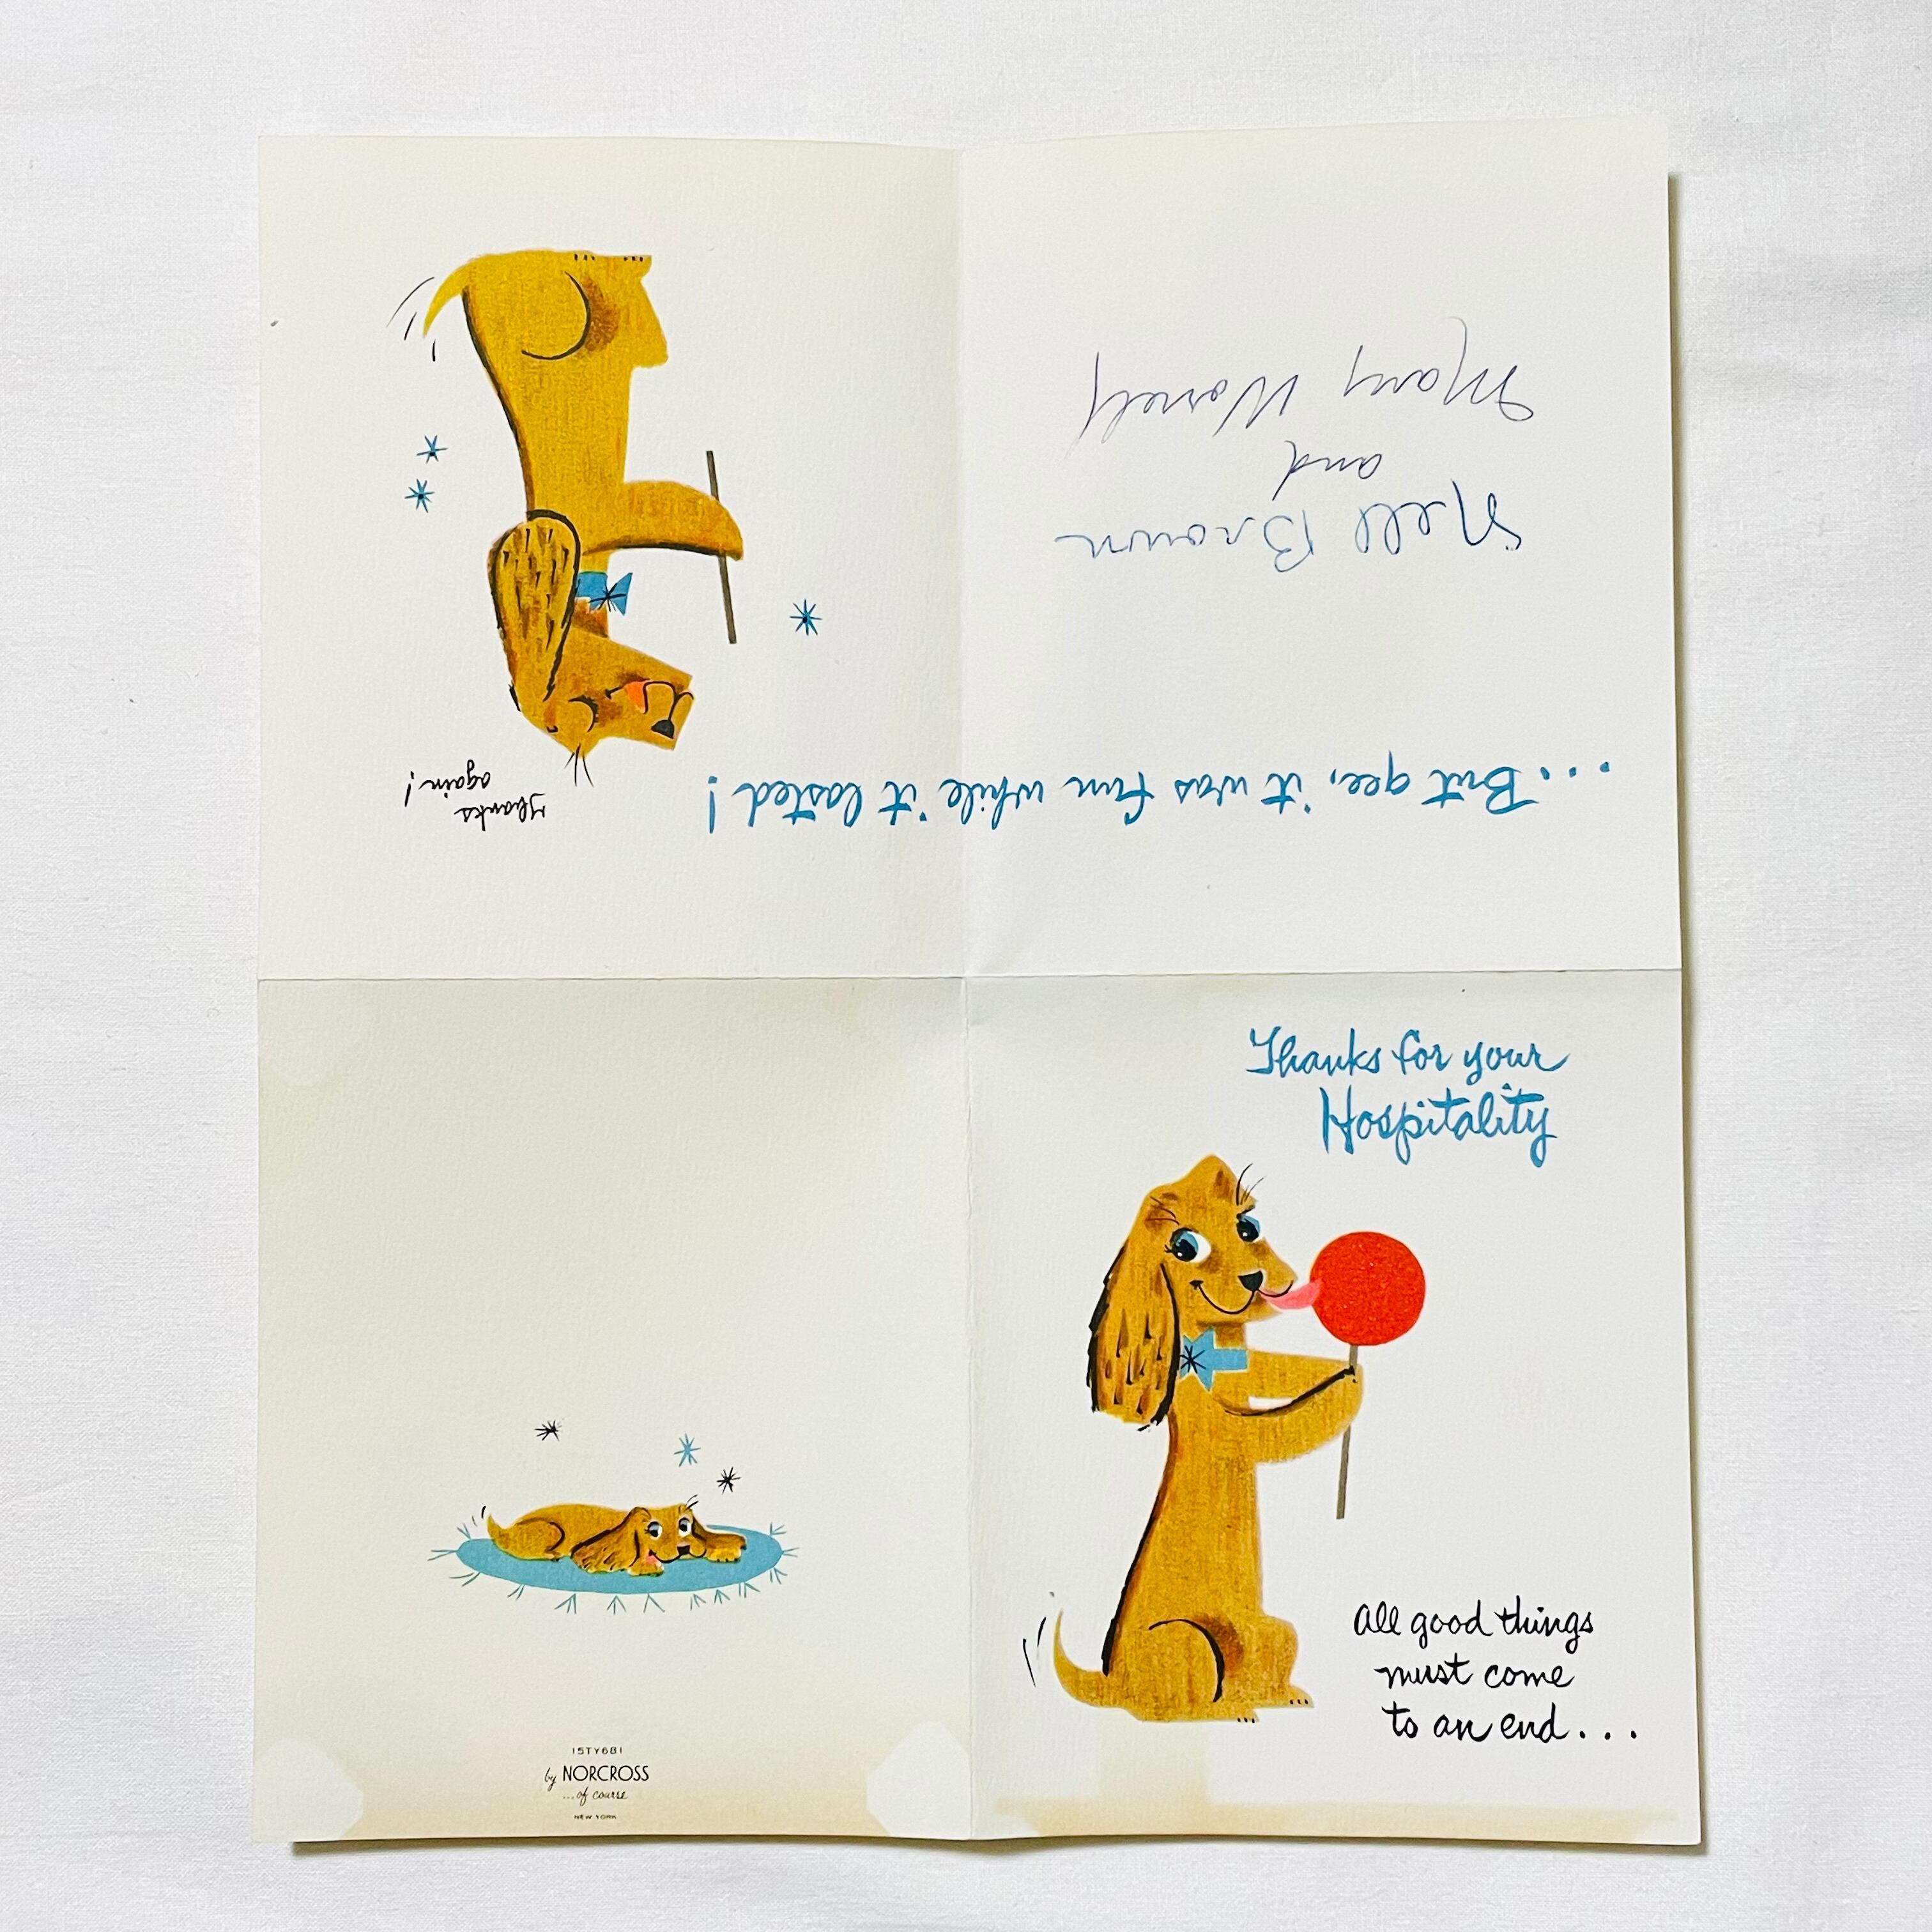 Thanks for your
Hospitality
All good things
must come
to an end...
...But gee, it was fun while it lasted!
Thanks
again!
Nell Brown
and
Mary Worely
15TY681
by NORCROSS
...of course
NEW YORK